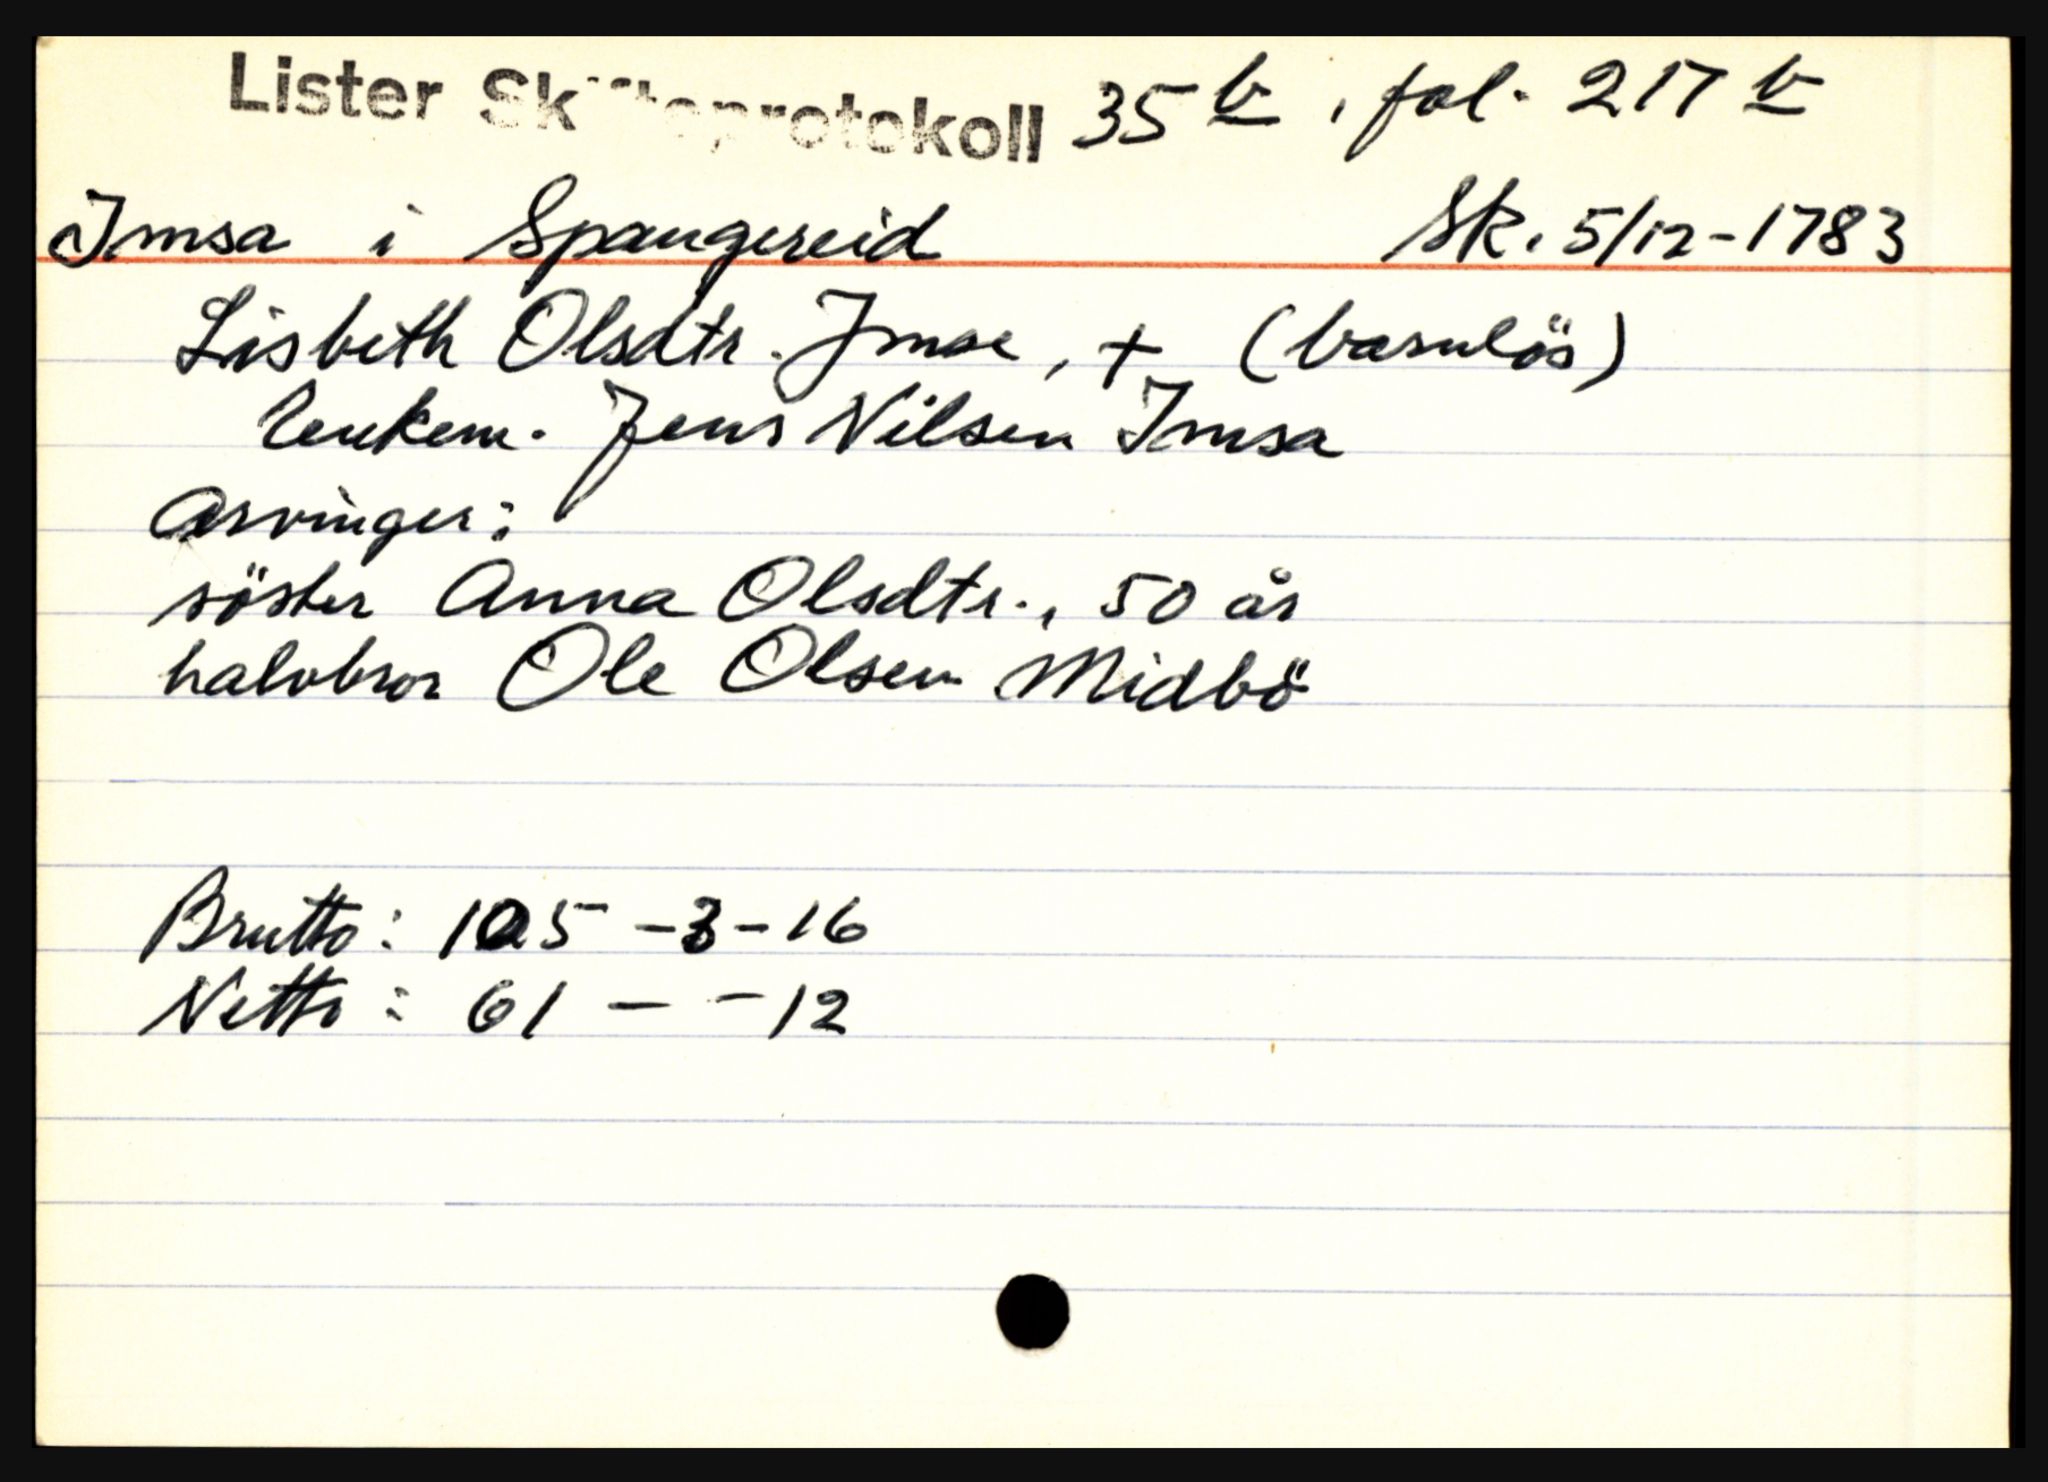 Lister Skifteprotokoll 35 b, fol. 217 b
Imsa i Spangereid Sk. 5/12-1783
Lisbeth Olsdtr. Imse, + (barnlös)
enkem. Jens Nilsen Imsa
Arvinger:
söster Anna Olsdtr., 50 år
halvbror Ole Olsen Midbö
Brutto: 105 -3-16
Netto: 61 - - 12